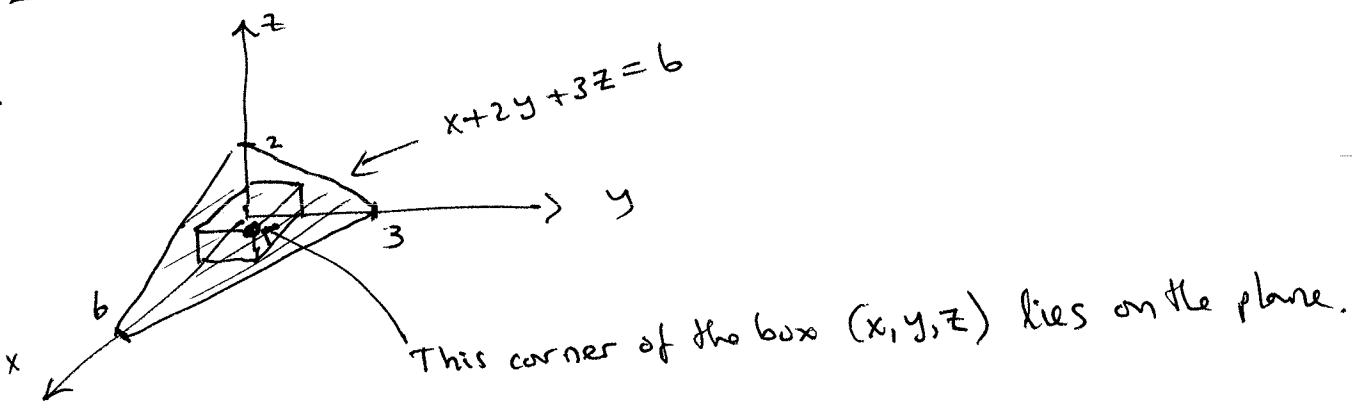 z
x+2y+3z=6
2
y
3
6
x
This corner of the box (x,y,z) lies on the plane.